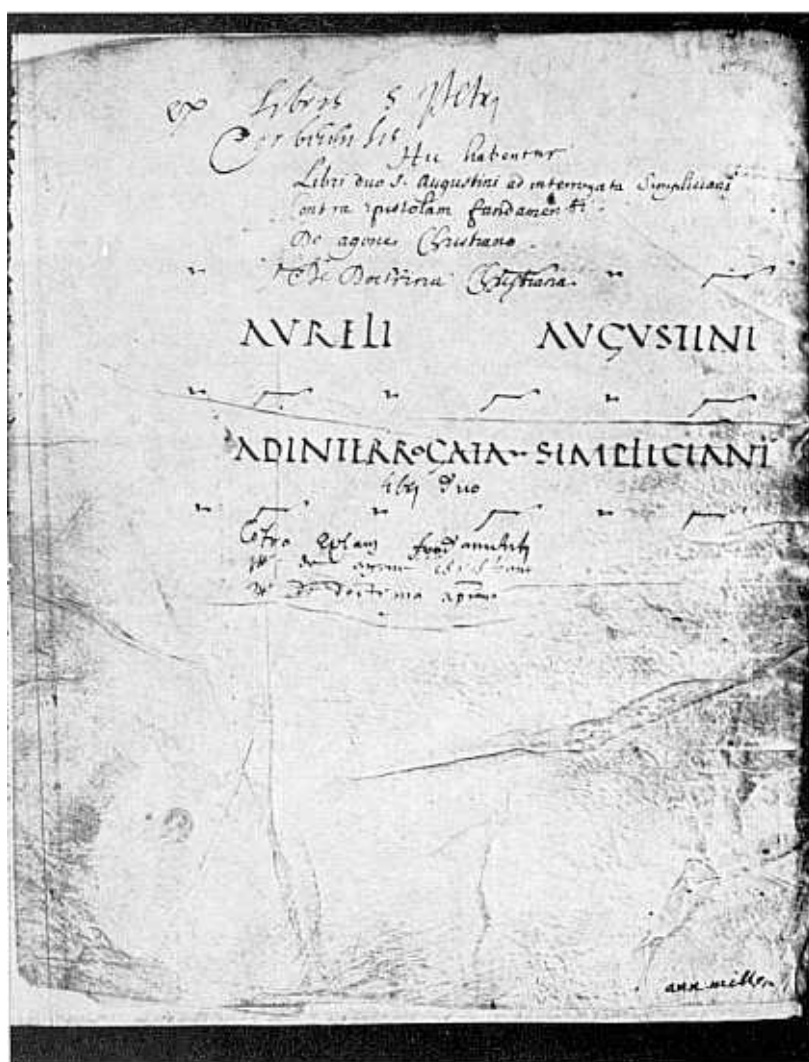 ex Libris S Petri
Corbeiensis
Hic habentur
Libri duo S. Augustini ad interrogata Simpliciani
contra epistolam fundamenti.
De agone Christiano.
De Doctrina Christiana.
AURELI AUGUSTINI
AD INTERROGATA SIMPLICIANI
libri duo
Cotra Eplam fundamenti
de agone christiano
de doctrina